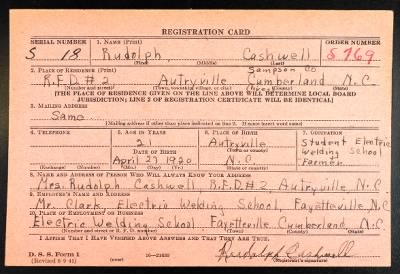 REGISTRATION CARD
SERIAL NUMBER 1. NAME (Print) ORDER NUMBER
S 18 Rudolph, Cashwell S769
(First) (Middle) (Last)
2. PLACE OF RESIDENCE (Print) Sampson Co
R.F.D.#2 Autryville Cumberland N.C
(Number and street) (Town, township, village, or city) (County) (State)
[THE PLACE OF RESIDENCE GIVEN ON THE LINE ABOVE WILL DETERMINE LOCAL BOARD
JURISDICTION; LINE 2 OF REGISTRATION CERTIFICATE WILL BE IDENTICAL]
3. MAILING ADDRESS
Same
[Mailing address if other than place indicated on line 2. If same insert word same]
4. TELEPHONE 5. AGE IN YEARS 6. PLACE OF BIRTH 7. OCCUPATION
21 Autryville Student Electric
DATE OF BIRTH (Town or county) Welding School
April 27 1920 N.C. Farmer
(Exchange) (Number) (Mo.) (Day) (Yr.) (State or country)
8. NAME AND ADDRESS OF PERSON WHO WILL ALWAYS KNOW YOUR ADDRESS
Mrs. Rudolph Cashwell R.F.D#2 Autryville, N.C
9. EMPLOYER'S NAME AND ADDRESS
Mr. Clark, Electric Welding School, Fayetteville N.C
10. PLACE OF EMPLOYMENT OR BUSINESS
Electric Welding School Fayetteville Cumberland N.C
(Number and street or R. F. D. number) (Town) (County) (State)
I AFFIRM THAT I HAVE VERIFIED ABOVE ANSWERS AND THAT THEY ARE TRUE.
D. S. S. Form 1 Rudolph Cashwell
(Revised 6-9-41) 16—21630 (Registrant's signature)